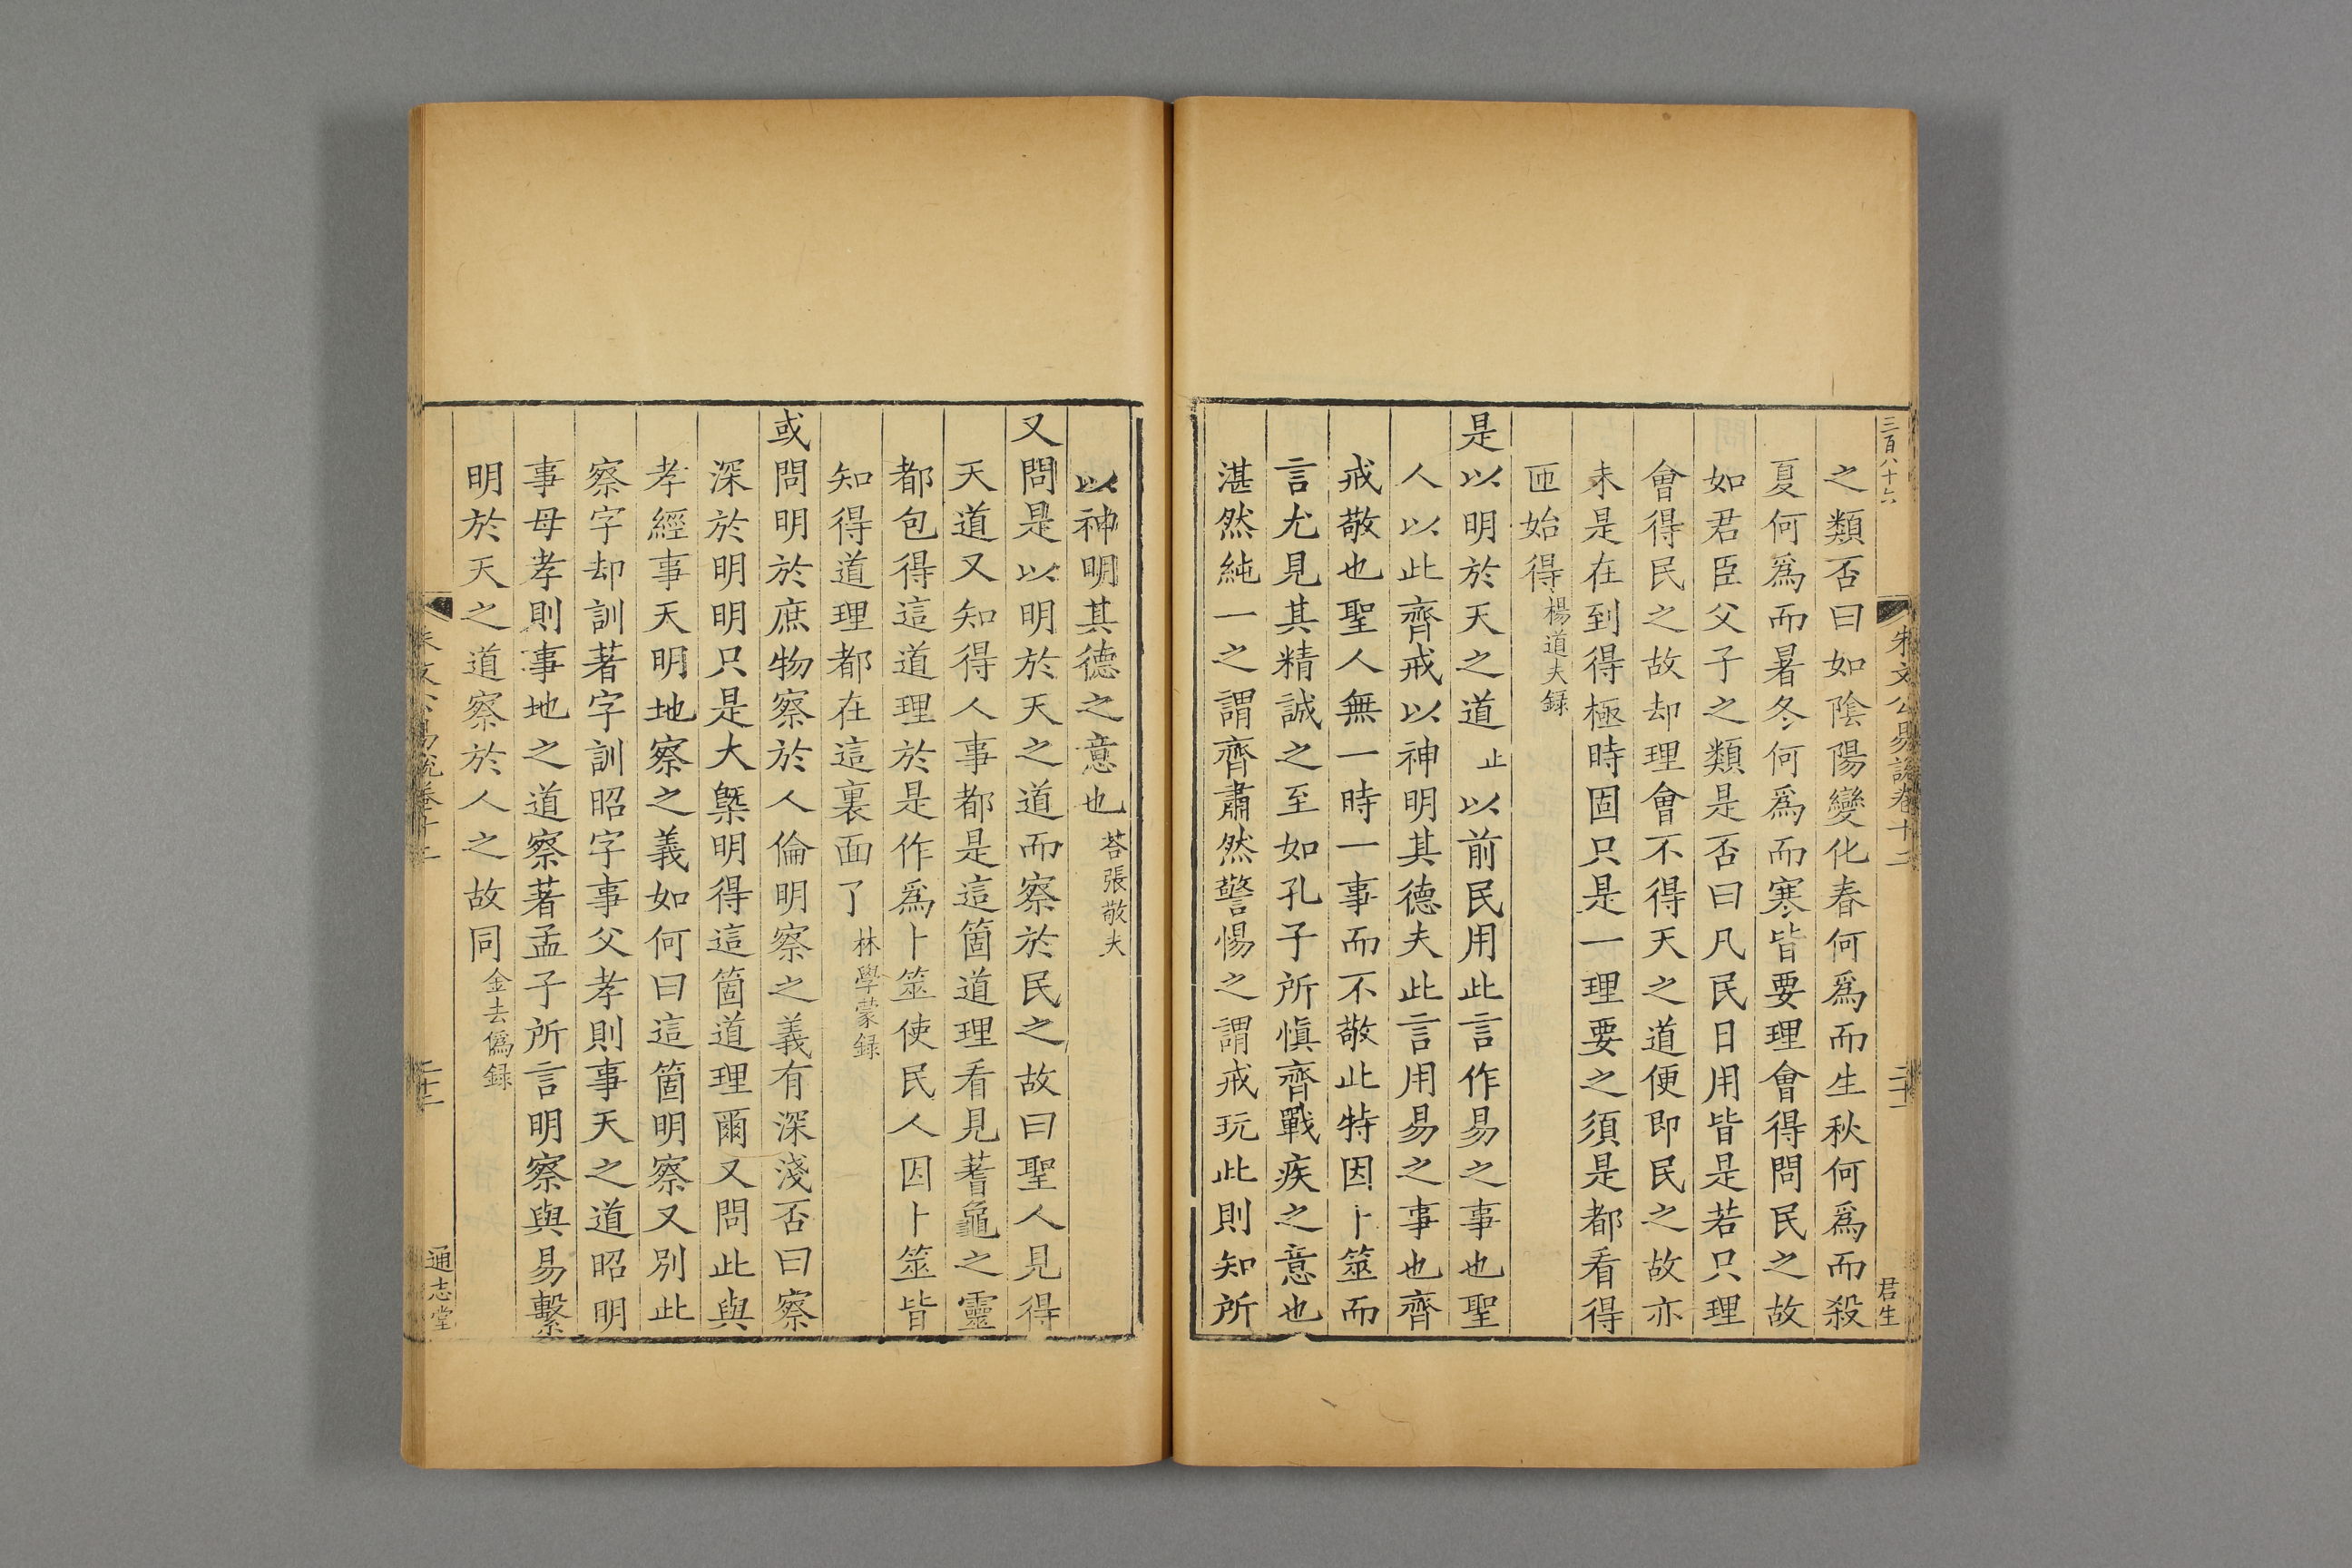 三百八十六
朱文公易說卷十二
二十一
君生
之類否曰如陰陽變化春何爲而生秋何爲而殺
夏何爲而暑冬何爲而寒皆要理會得問民之故
如君臣父子之類是否曰凡民日用皆是若只理
會得民之故却理會不得天之道便即民之故亦
未是在到得極時固只是一理要之須是都看得
匝始得楊道夫録
是以明於天之道止以前民用此言作易之事也聖
人以此齊戒以神明其德夫此言用易之事也齊
戒敬也聖人無一時一事而不敬此特因卜筮而
言尤見其精誠之至如孔子所愼齊戰疾之意也
湛然純一之謂齊肅然警惕之謂戒玩此則知所
以神明其德之意也荅張敬夫
又問是以明於天之道而察於民之故曰聖人見得
天道又知得人事都是這箇道理看見蓍龜之靈
都包得這道理於是作爲卜筮使民人因卜筮皆
知得道理都在這裏面了林學蒙録
或問明於庶物察於人倫明察之義有深淺否曰察
深於明明只是大槩明得這箇道理爾又問此與
孝經事天明地察之義如何曰這箇明察又別此
察字却訓著字訓昭字事父孝則事天之道昭明
事母孝則事地之道察著孟子所言明察與易繫
明於天之道察於人之故同金去僞録
朱文公易說卷十二
二十二
通志堂